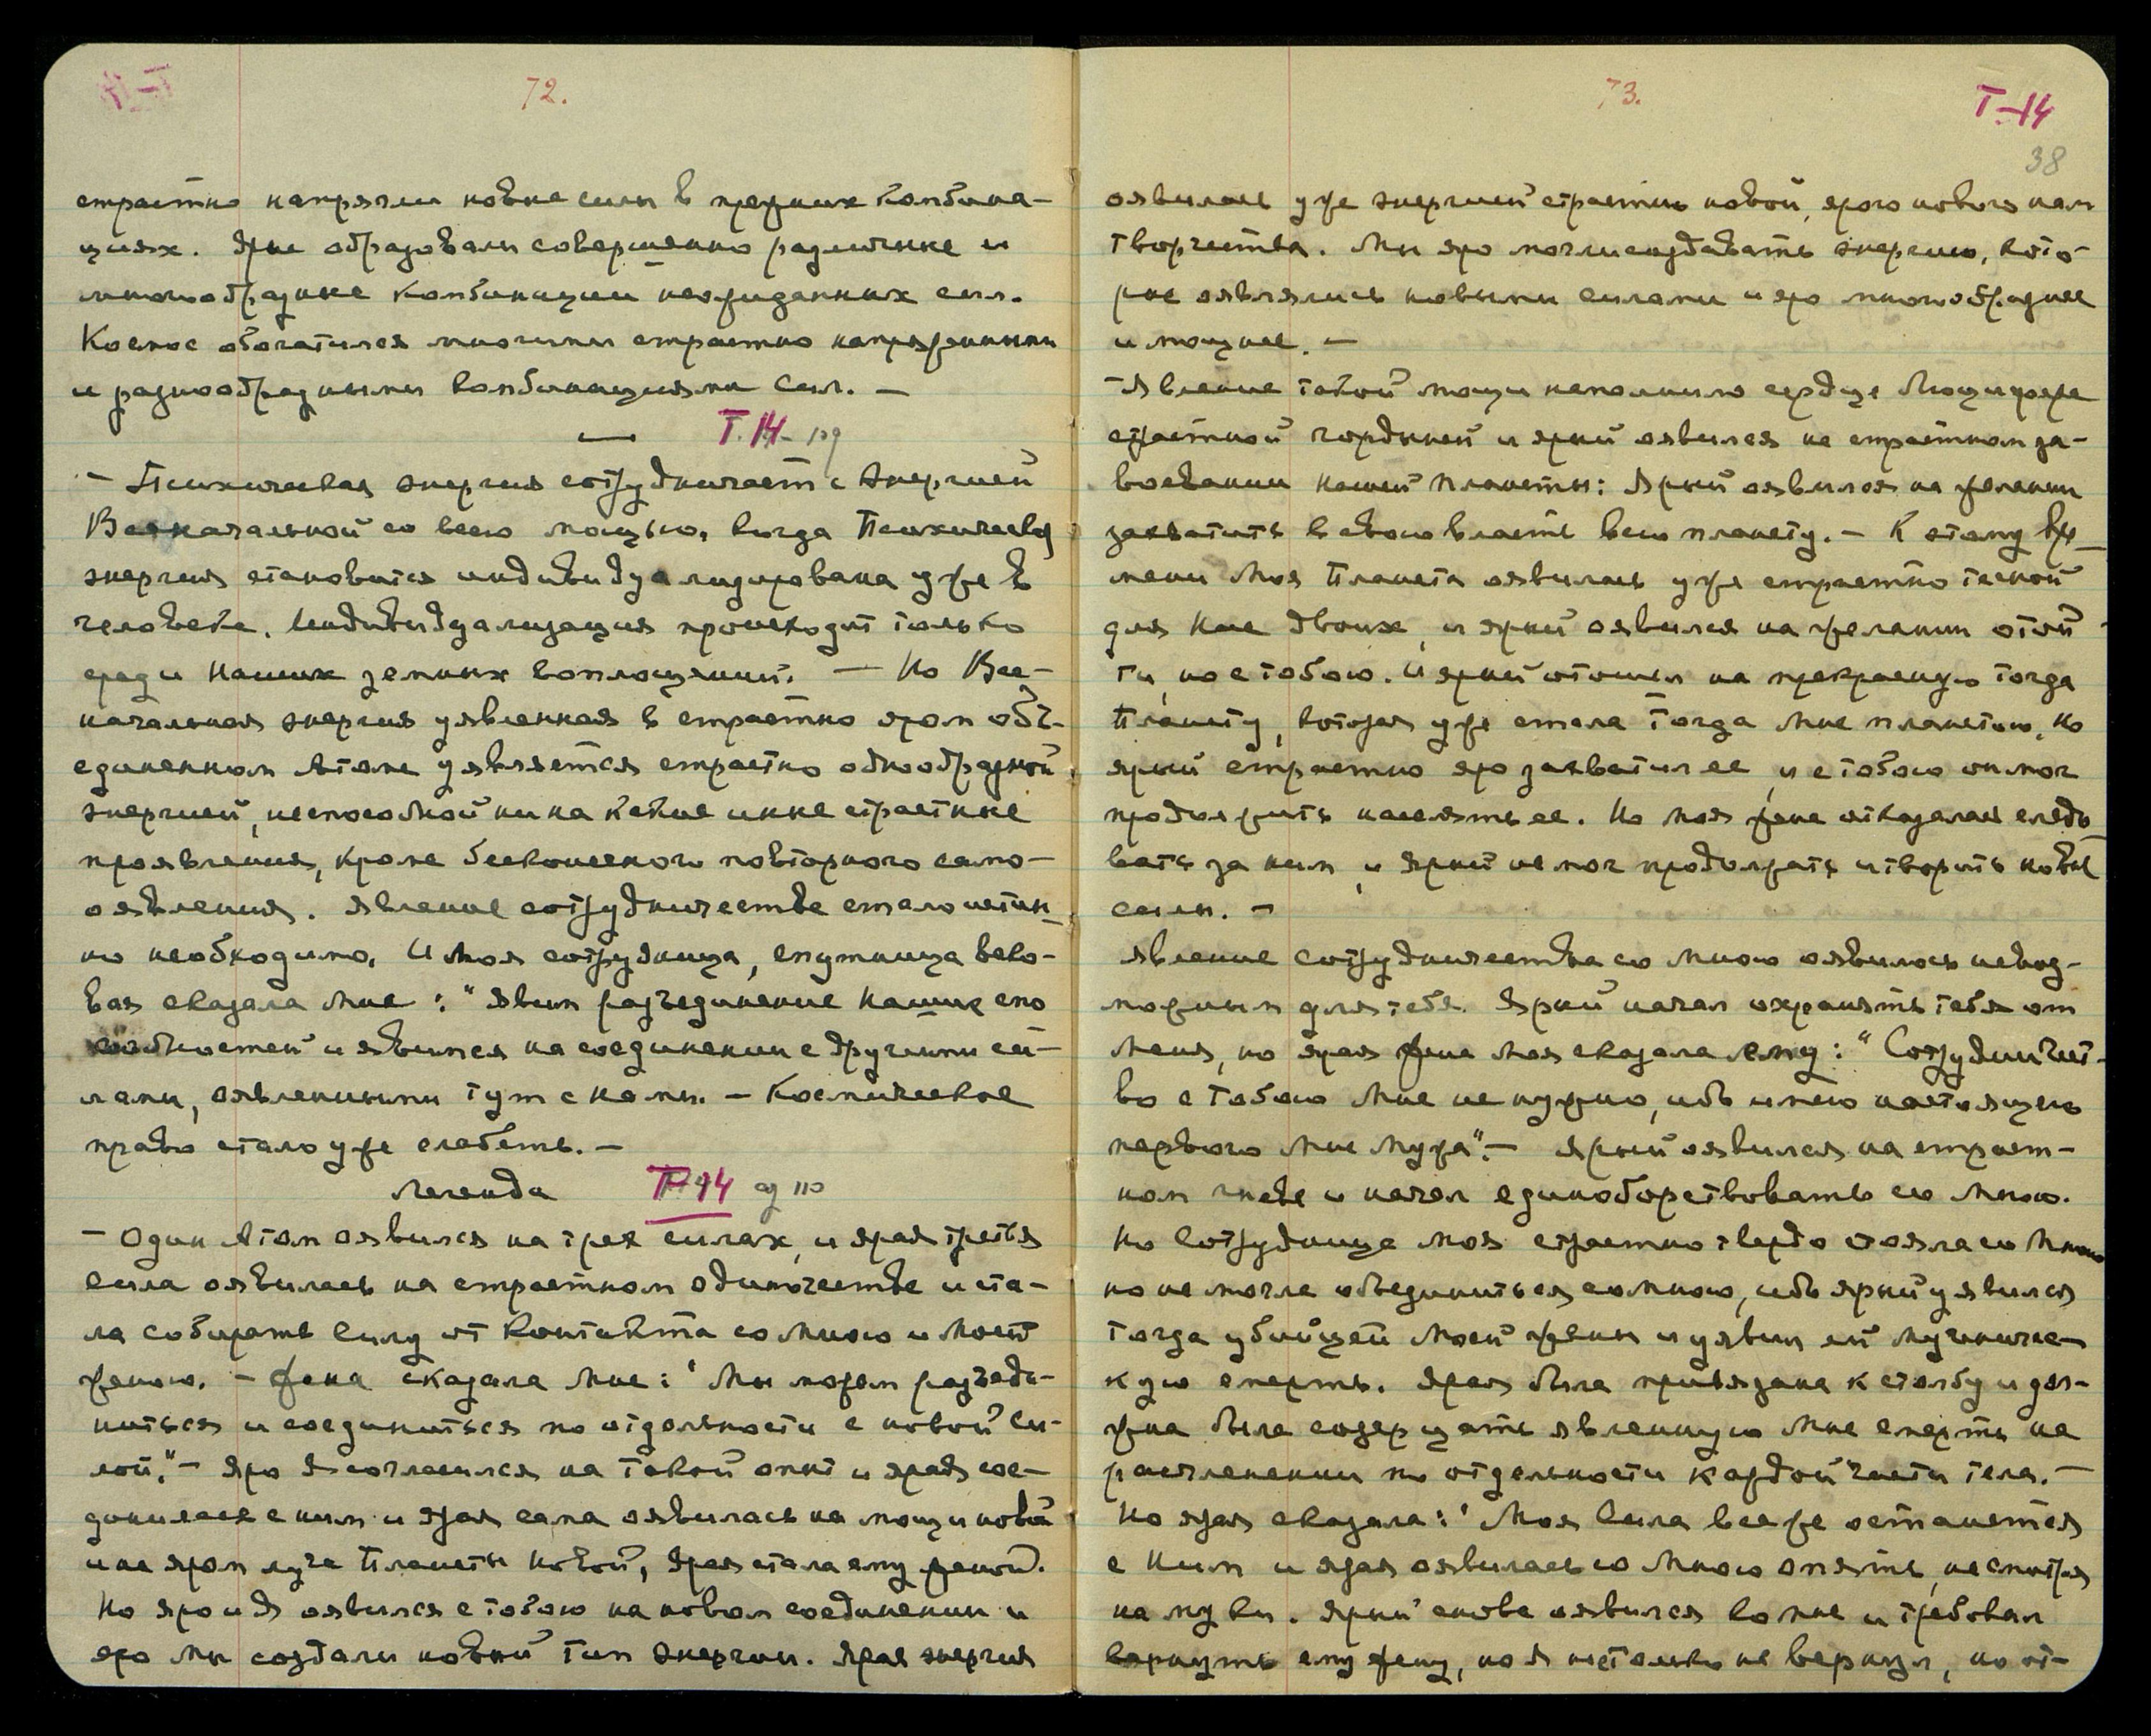 72.
страстно напрягли новые силы в прежних комбина-
циях. Ярые образовали совершенно различные и
многообразные комбинации неожиданных сил.
Космос обогатился многими страстно напряженными
и разнообразными комбинациями сил. —
— Т. 14 - 109
- Психическая энергия сотрудничает с энергией
Всеначальной со всею мощью, когда Психическая
энергия становится индивидуализирована уже в
человеке. Индивидуализация происходит только
среди Наших земных воплощений. — Но Все-
начальная энергия уявленная в страстно яром объ-
единенном Атоме уявляется страстно однообразной
энергией, неспособной ни на какие иные страстные
проявления, кроме бесконечного повторного само-
оявления. Явление сотрудничества стало истин-
но необходимо. И Моя сотрудница, спутница веко-
вая сказала Мне: "Явим разъединение Наших спо
собностей и явимся на соединении с другими си-
лами, оявленными тут с нами. - Космическое
право стало уже слабеть. —
Легенда Т-14 110
- Один Атом оявился на трех силах, и ярая третья
сила оявилась на страстном одиночестве и ста-
ла собирать силу от контакта со Мною и Моей
женою. - Жена сказала Мне: "Мы можем разъеди-
ниться и соединиться по отдельности с новой си-
лой." - Яро Я согласился на такой опыт и ярая сое-
динилася с ним и ярая сама оявилась на мощи новой
и на яром луче Планеты Новой, Ярая стала ему женой.
Но яро и Я оявился с тобою на новом соединении и
яро Мы создали новый тип энергии. Ярая энергия
73.
Т-14
38
оявилась уже энергией страстно новой, ярого нового нам
творчества. Мы яро могли создавать энергию, кото-
рые оявлялись новыми силами и яро многообразнее
и мощнее. —
- Явление такой мощи наполнило сердце Люцифера
страстной гордыней и ярый оявился на страстном за-
воевании нашей планеты: Ярый оявился на желании
захватить в свою власть всю планету. - К этому вре-
мени Моя Планета оявилась уже страстно тесной
для Нас двоих, и ярый оявился на желании отой-
ти, но с тобою. И ярый отошел на прекрасную тогда
Планету, которая уже стала тогда Мне планетою, но
ярый страстно яро захватил ее, и с тобою он мог
продолжить населять ее. Но моя жена отказалась следо
вать за ним, и Ярый не мог продолжать и творить новые
силы. —
Явление сотрудничества со Мною оявилось невоз-
можным для тебя. Ярый начал охранять тебя от
Меня, но ярая жена Моя сказала ему: "Сотрудничест-
во с Тобою Мне не нужно, ибо имею настоящего
первого Мне Мужа". - Ярый оявился на страст-
ном гневе и начал единоборствовать со Мною.
Но Сотрудница Моя страстно твердо стояла со Мною
но не могла объединиться со мною, ибо ярый уявился
тогда убийцей Моей жены и уявил ей мучениче-
кую смерть. Ярая была привязана к столбу и дол-
жна была созерцать явленную Мне смерть на
расчленении по отдельности каждой части тела. —
Но ярая сказала: "Моя Сила все же останется
с Ним и ярая оявилась со Мною опять, несмотря
на муки. Ярый снова оявился ко мне и требовал
вернуть ему жену, но Я не только не вернул, но от-